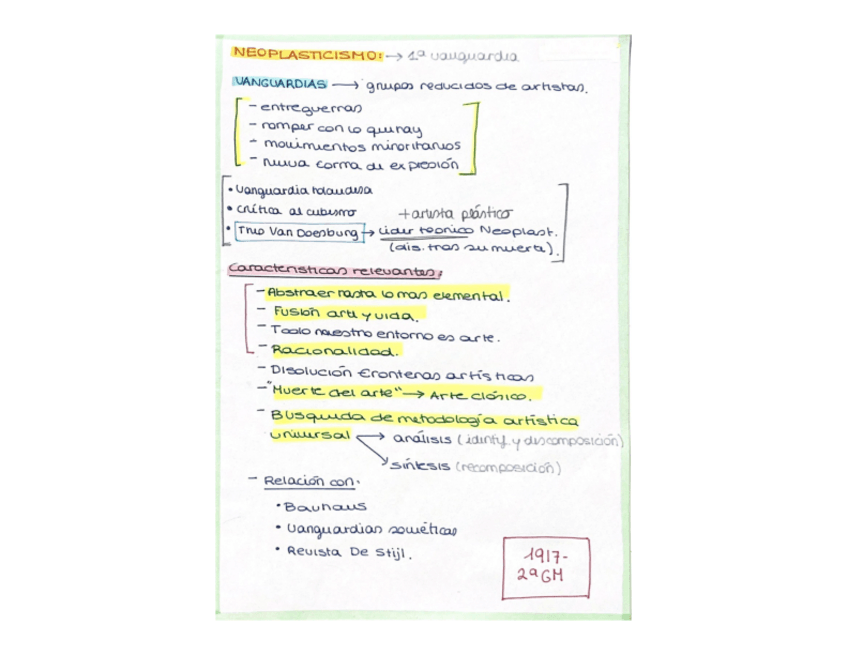 NEOPLASTICISMO: → 1ª vanguardia
VANGUARDIAS → grupos reducidos de artistas.
- entreguerras
- romper con lo que hay
- movimientos minoritarios
- nueva forma de expresión
• Vanguardia holandesa
• crítica al cubismo + artista plástico
• Theo Van Doesburg → Líder teórico Neoplast.
(dis. tras su muerte).
Características relevantes:
- Abstraer hasta lo más elemental.
- Fusión arte y vida.
- Todo nuestro entorno es arte.
- Racionalidad.
- Disolución fronteras artísticas
- "Muerte del arte" → Arte clásico.
- Búsqueda de metodología artística
universal → análisis (identif. y descomposición)
→ síntesis (recomposición)
- Relación con:
• Bauhaus
• Vanguardias soviéticas
• Revista De Stijl.
1917-
2ªGM